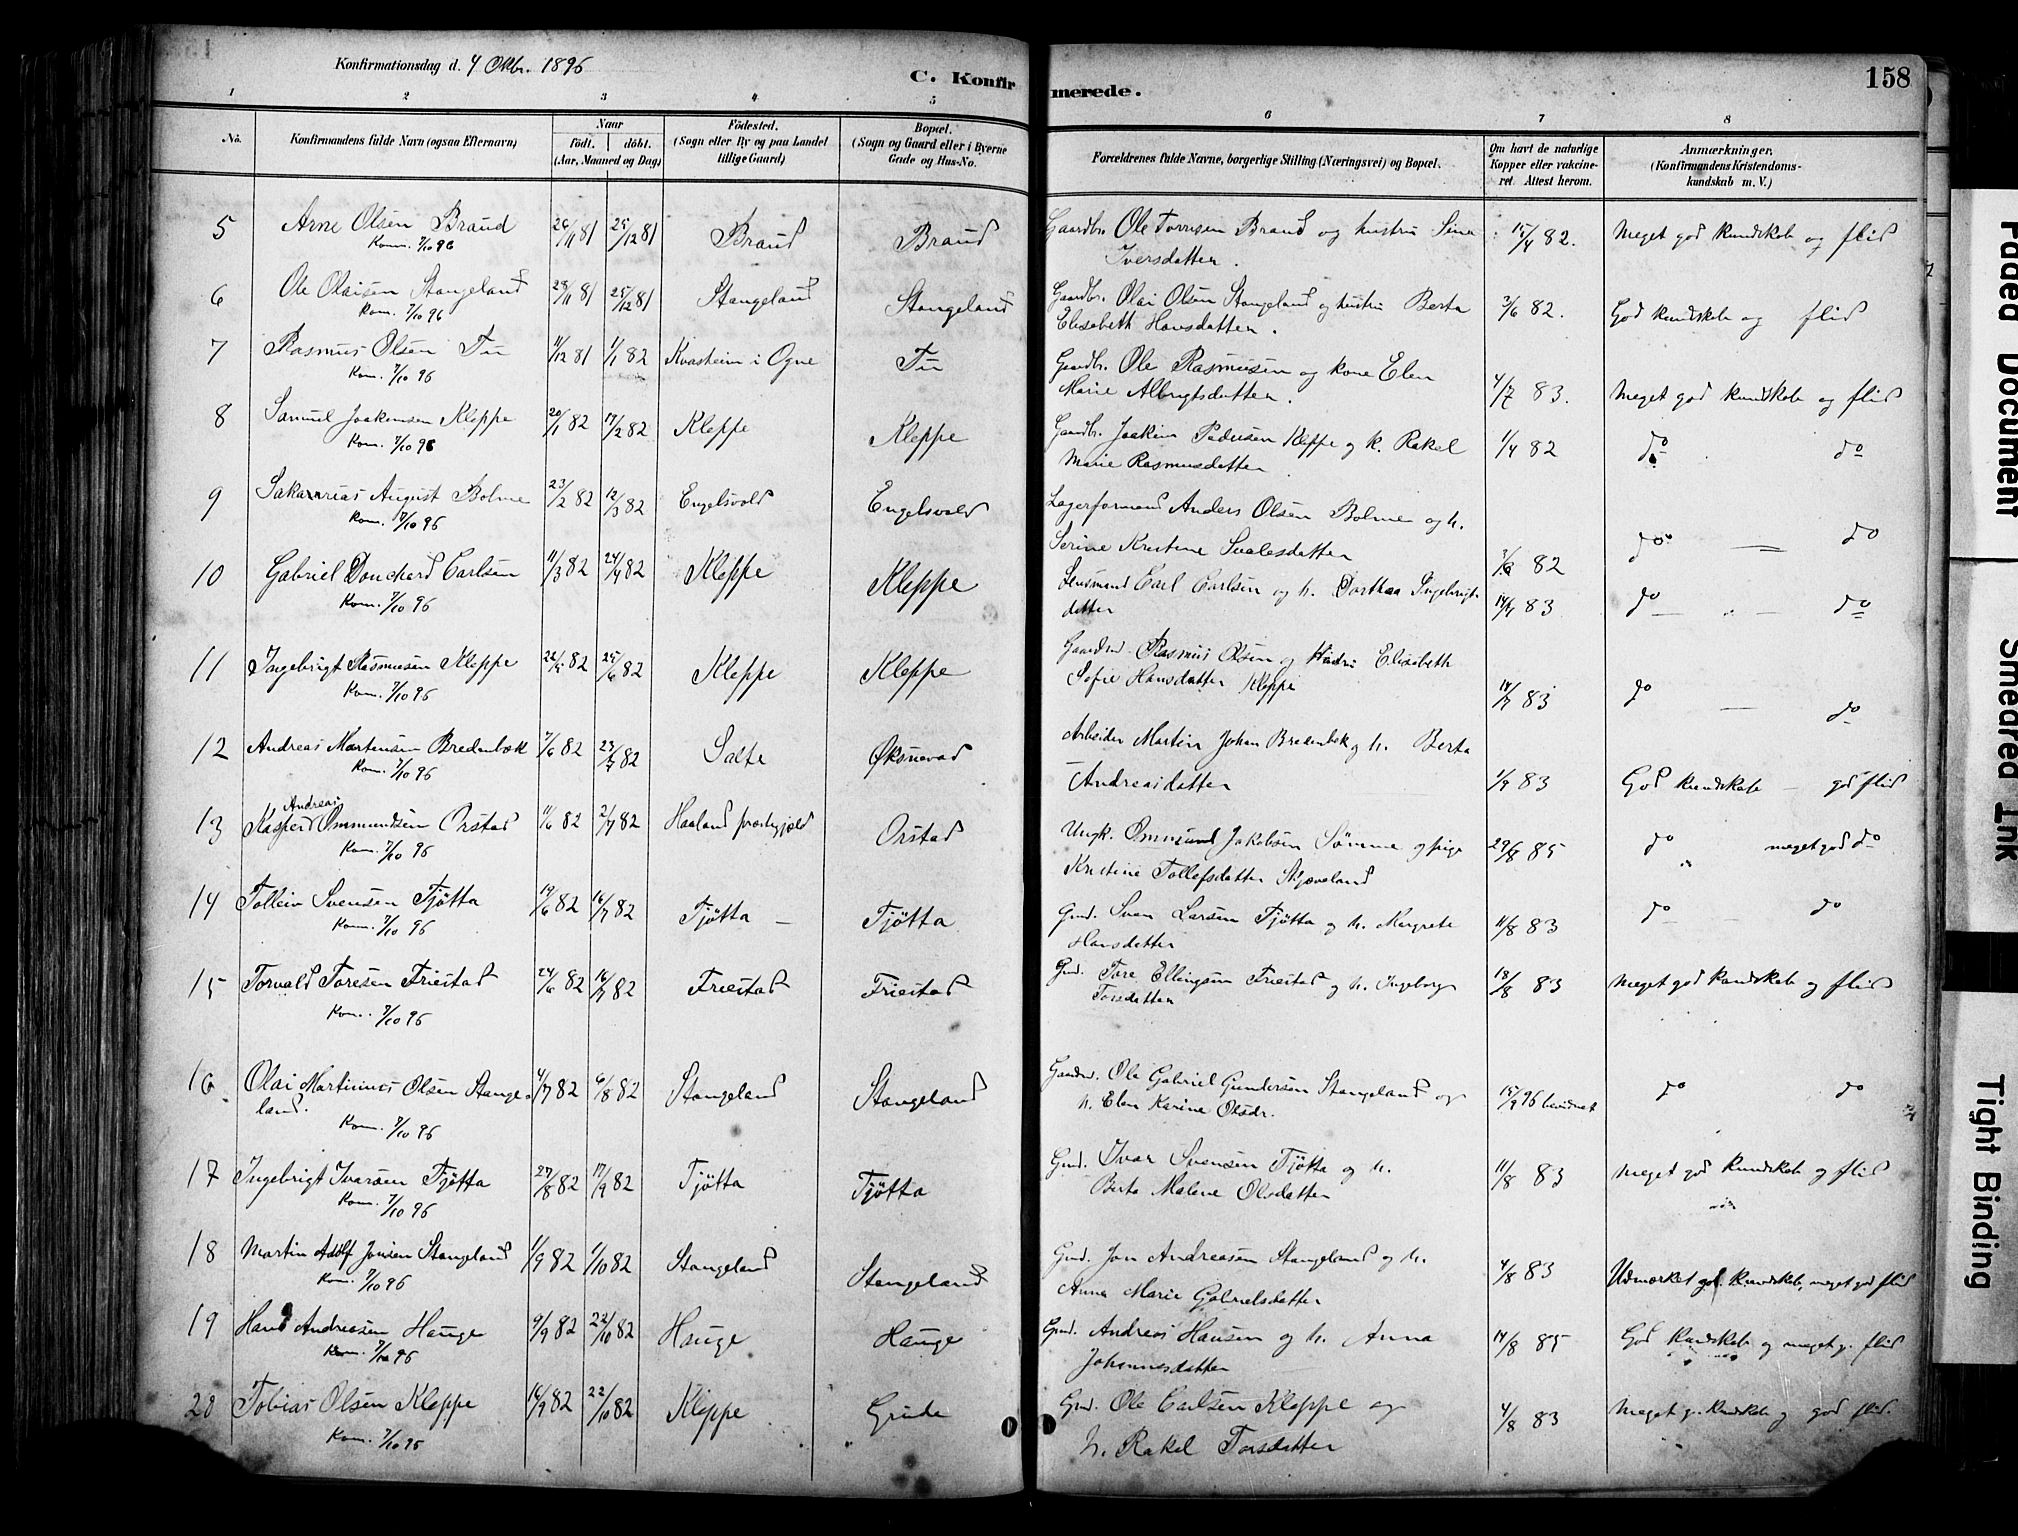 Konfirmationsdag d. 4 Oktbr. 1896
C. Konfirmerede.
158
1 2 3 4 5 6 7 8
No.
Konfirmandens fulde Navn (ogsaa Efternavn)
Naar
födt. döbt.
(Aar, Maaned og Dag)
Födested.
(Sogn eller By og paa Landet
tillige Gaard)
Bopæl.
(Sogn og Gaard eller i Byerne
Gade og Hus-No.
Forældrenes fulde Navne, borgerlige Stilling (Næringsvei) og Bopæl.
Om havt de naturlige
Kopper eller vakcine-
ret. Attest herom.
Anmærkninger,
(Konfirmandens Kristendoms-
kundskab m. V.)
5 Arne Olsen Braud 26/11 81 25/12 81 Braud Braud Gaardbr. Ole Torresen Braud og hustru Sina 15/4 82. Meget god kundskab og flid
Kom. 7/10 96 Iversdatter.
6 Ole Olaisen Stangeland 28/11 81 25/12 81 Stangeland Stangeland Gaardbr. Olai Olsen Stangeland og hustru Berta 3/6 82. God kundskab og flid
Kom. 7/10 96 Elisabeth Hansdatter.
7 Rasmus Olsen Tu 11/12 81 1/1 82 Kvasheim i Ogne Tu Gaardbr. Ole Rasmussen og kone Elen 4/7 83. Meget god kundskab og flid
Kom. 7/10 96 Marie Albregtsdatter.
8 Samuel Joakimsen Kleppe 20/1 82 17/2 82 Kleppe Kleppe Gaardbr. Joakim Pedersen Kleppe og h. Rakel 1/4 82 do do
Kom. 7/10 96 Marie Rasmusdatter
9 Sakarias August Bolme 23/2 82 12/3 82 Engelsvold Engelsvold Lagerformand Anders Olsen Bolme og h. do do
Kom. 7/10 96 Serine Kristine Svalesdatter 3/6 82
10 Gabriel Bouchard Carlsen 11/3 82 24/4 82 Kleppe Kleppe Lensmand Carl Carlsen og h. Dorthea Ingebrigts 83 do do
Kom. 7/10 96 datter
11 Ingebrigt Rasmussen Kleppe 82 25/6 82 Kleppe Kleppe Gaardbr. Rasmus Olsen og Hustru Elisabeth 83 do do
Kom. 7/10 96 Sofie Hansdatter Kleppe
12 Andreas Martensen Bredenbæk 7/6 82 23/7 82 Salte Øksnevad Arbeider Martin Johan Bredenbek og h. Berta
Kom. 7/10 96 Andreasdatter 1/9 83 God kundskab — god flid
Andreas
13 Kasper Ommundsen Orstad 11/6 82 2/7 82 Haaland præstegjæld Orstad Ungk. Ommund Jakobsen Sömme og pige 29/8 85 do meget god do
Kom. 7/10 96 Kristine Tollefsdatter Skjæveland
14 Tollein Svensen Tjötta 19/6 82 16/7 82 Tjötta — Tjötta Gmd. Sven Larsen Tjötta og h. Margrete 11/8 83 do do
Kom. 7/10 96 Hansdatter
15 Torvald Toresen Friestad 24/6 82 16/7 82 Friestad Friestad Gmd. Tore Ellingsen Friestad og h. Ingeborg 18/8 83 Meget god kundskab og flid
Kom. 7/10 96 Torsdatter
16 Olai Martinius Olsen Stange- 4/7 82 6/8 82 Stangeland Stangeland Gaardbr. Ole Gabriel Gundersen Stangeland og 15/9 96 do do
land. h. Elen Karine Olsdr.
Kom. 7/10 96
17 Ingebrigt Ivarsen Tjötta 27/8 82 17/9 82 Tjötta Tjötta Gmd. Ivar Svensen Tjötta og h. 11/8 83 Meget god kundskab og flid
Kom. 7/10 96 Berta Malene Olsdatter
18 Martin Adolf Jonsen Stangeland 1/9 82 1/10 82 Stangeland Stangeland Gmd. Jon Andreasen Stangeland og h. 4/8 83 Udmærket god kundskab, meget god flid
Kom. 7/10 96 Anna Marie Gabrielsdatter
19 Hans Andreasen Hauge 9/9 82 22/10 82 Hauge Hauge Gmd. Andreas Hansen og h. Anna 14/8 85 God kundskab og meget g. flid
Kom. 7/10 96 Johannesdatter
20 Tobias Olsen Kleppe 14/9 82 22/10 82 Kleppe Grude Gmd. Ole Carlsen Kleppe og 4/8 83 Meget g. kundskab og god flid.
Kom. 7/10 96 h. Rakel Torsdatter
Faded Document
Smeared Ink
Tight Binding